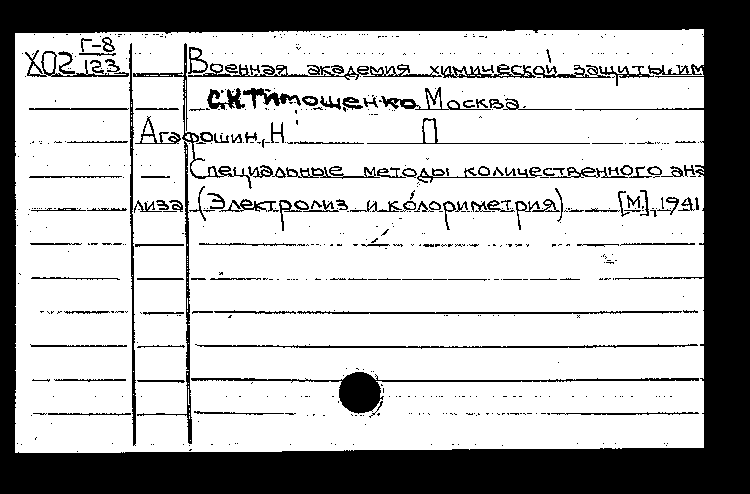 Х02 Г-8
123
Военная академия химической защиты им
С.К.Тимошенко Москва.
Агафошин, Н П
Специальные методы количественного ана
лиза (Электролиз и колориметрия) [М.], 1941.